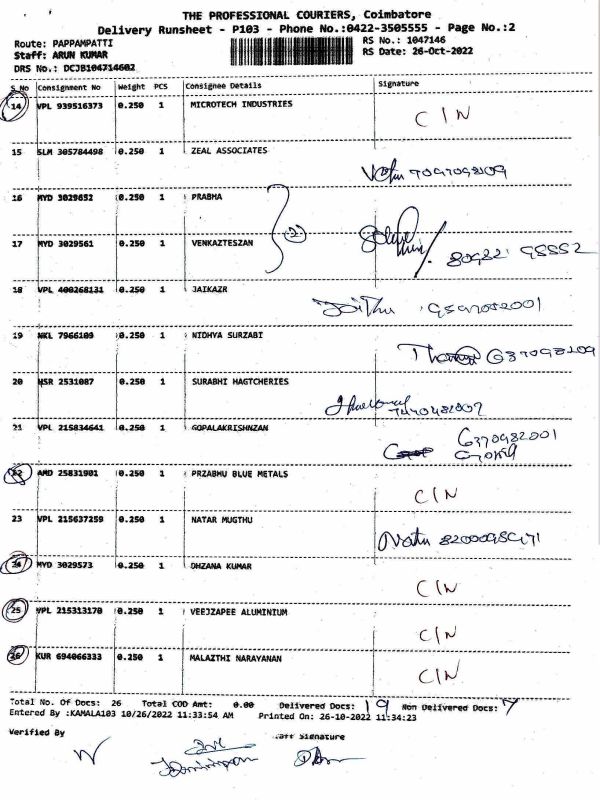 THE PROFESSIONAL COURIERS, Coimbatore
Delivery Runsheet - P103 - Phone No.:0422-3505555 - Page No.:2
Route: PAPPAMPATTI RS No.: 1047146
Staff: ARUN KUMAR RS Date: 26-Oct-2022
DRS No.: DCJB104714602
S No Consignment No Weight PCS Consignee Details Signature
14 VPL 939516373 0.250 1 MICROTECH INDUSTRIES CIN
15 SLM 305784498 0.250 1 ZEAL ASSOCIATES
16 MYD 3029652 0.250 1 PRABHA
17 MYD 3029561 0.250 1 VENKAZTESZAN
18 VPL 400268131 0.250 1 JAIKAZR
19 NKL 7966109 0.250 1 NIDHYA SURZABI
20 HSR 2531087 0.250 1 SURABHI HAGTCHERIES
21 VPL 215834641 0.250 1 GOPALAKRISHNZAN 6370982001
22 AMD 25831901 0.250 1 PRZABHU BLUE METALS CIN
23 VPL 215637259 0.250 1 NATAR MUGTHU
24 MYD 3029573 0.250 1 DHZANA KUMAR CIN
25 VPL 215313170 0.250 1 VEEJZAPEE ALUMINIUM CIN
26 KUR 694066333 0.250 1 MALAZTHI NARAYANAN CIN
Total No. Of Docs: 26 Total COD Amt: 0.00 Delivered Docs: 19 Non Delivered Docs: 7
Entered By :KAMALA103 10/26/2022 11:33:54 AM Printed On: 26-10-2022 11:34:23
Verified By Staff Signature